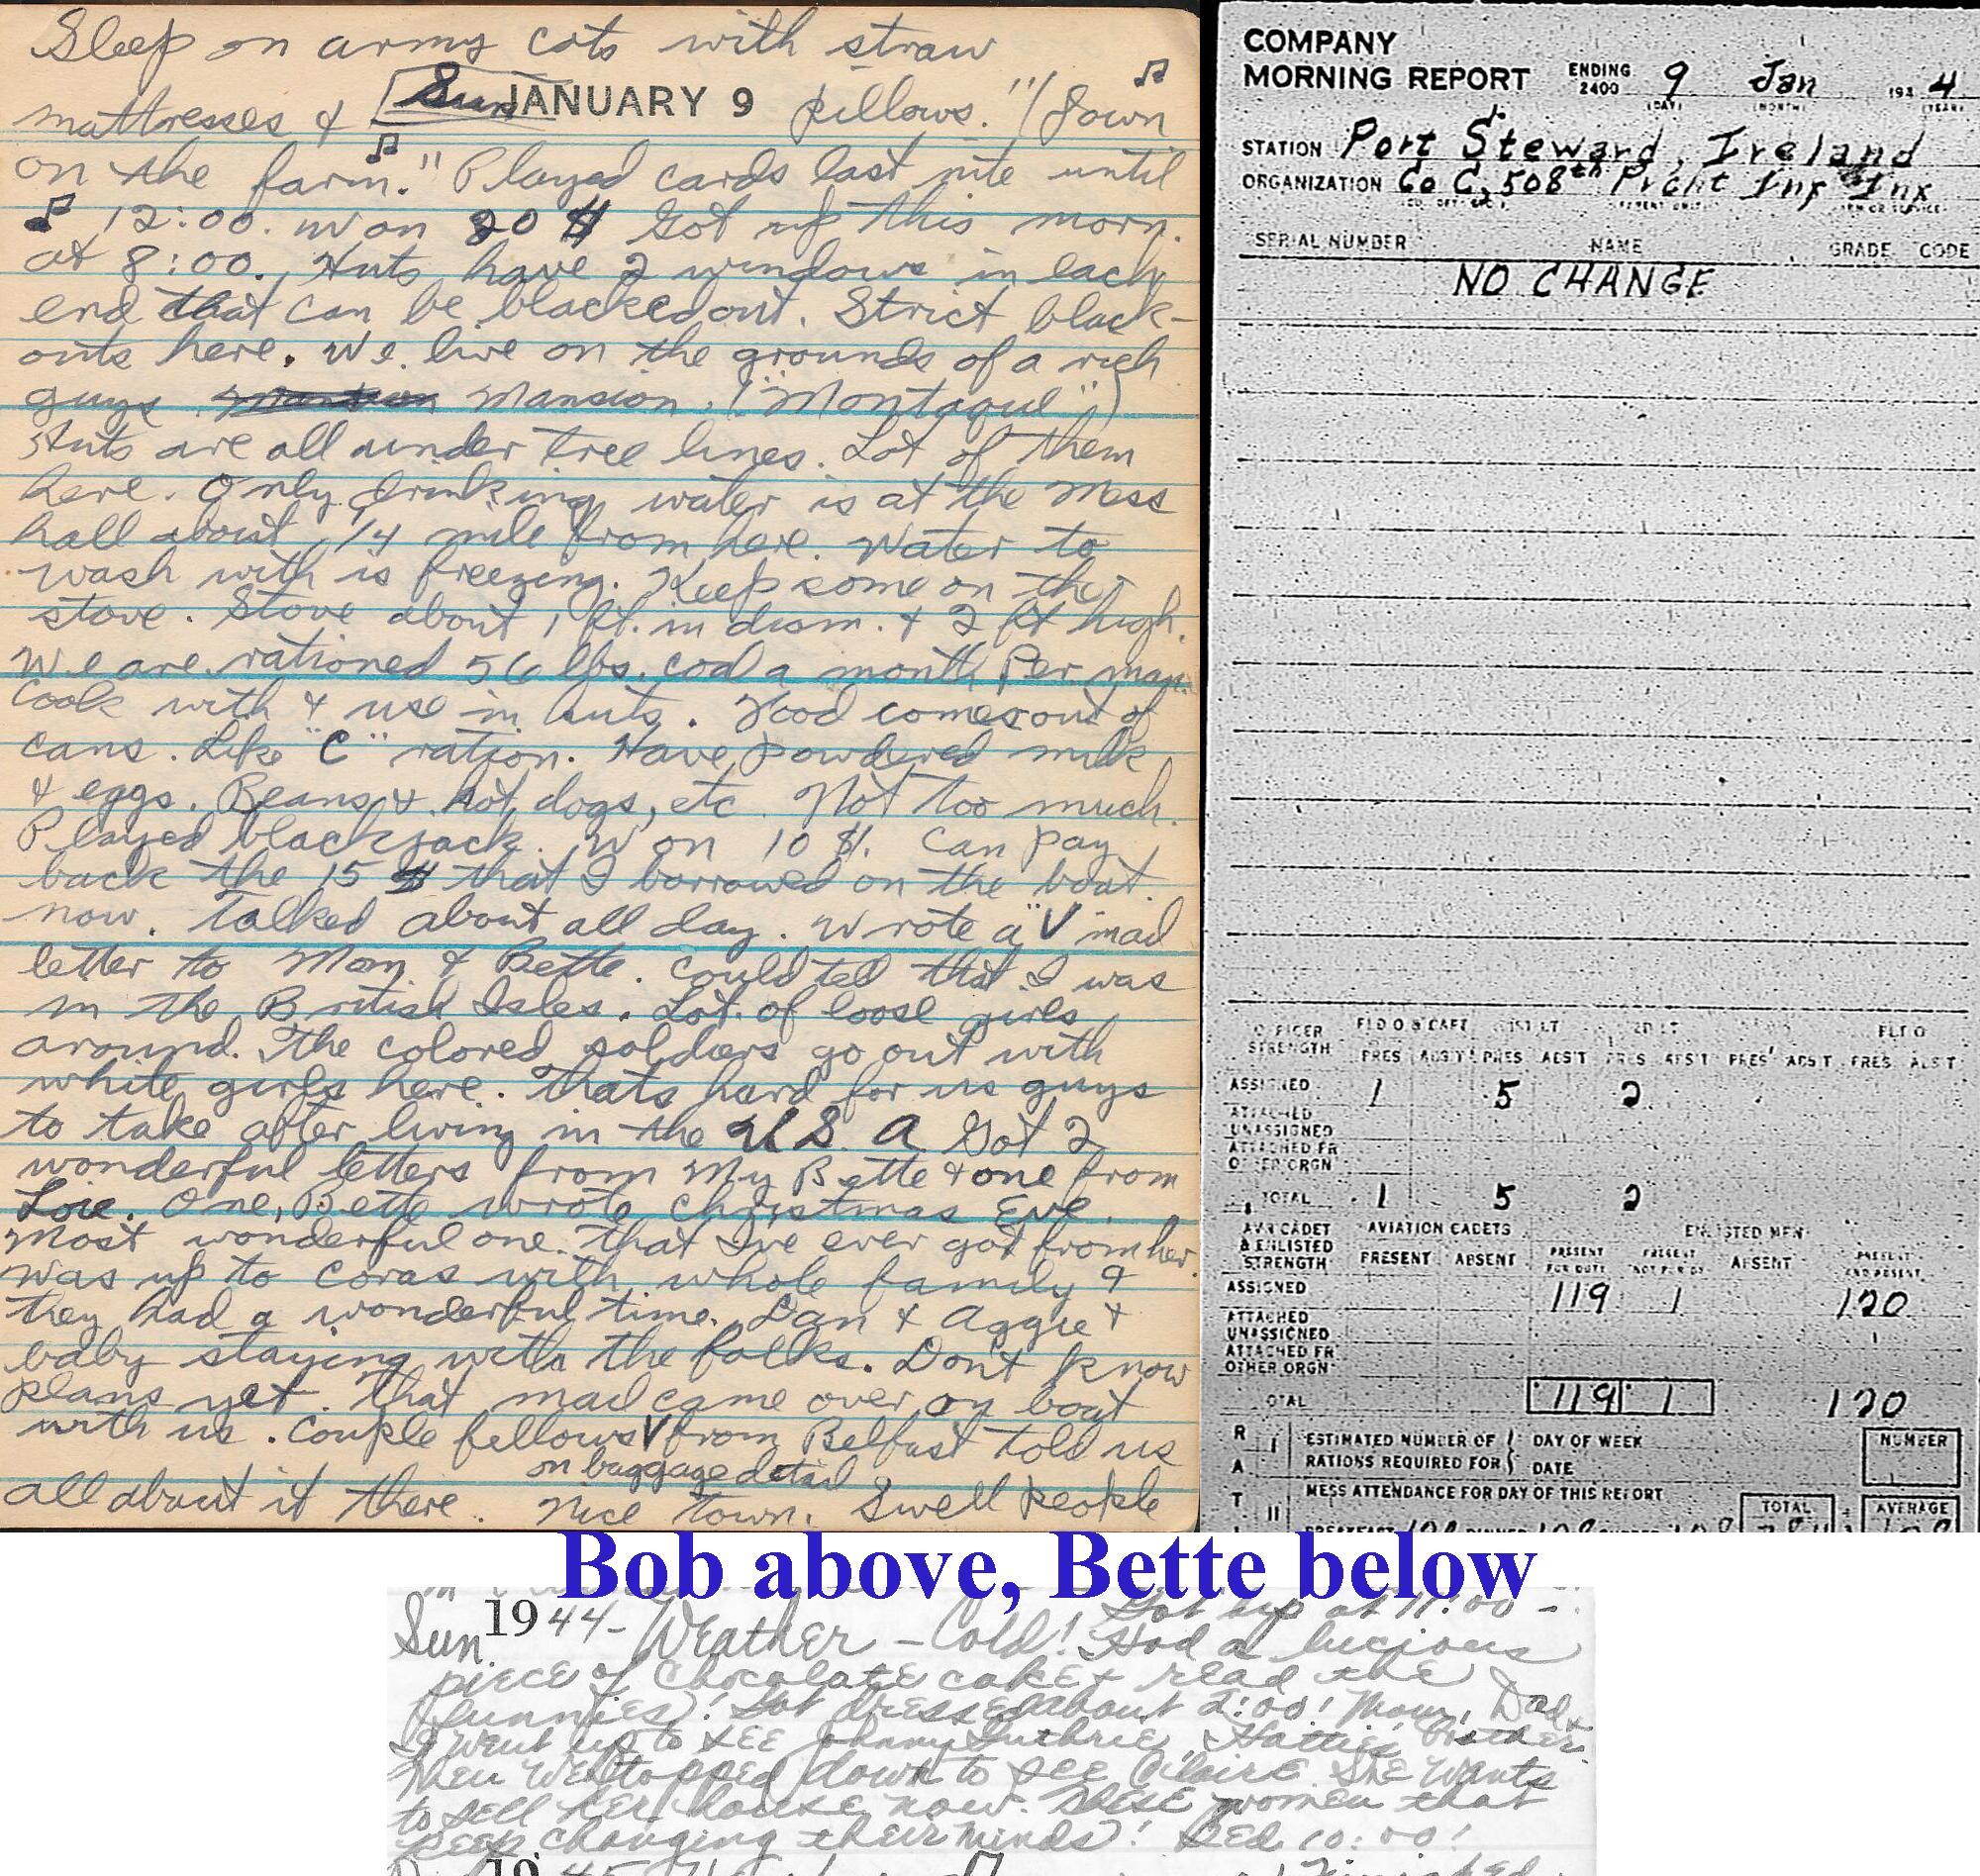 Sleep on army cots with straw
mattresses & Sun JANUARY 9 pillows." (♫ "Down
on the farm." ♫ Played cards last nite until
♫ 12:00. Won 20 $ Got up this morn.
at 8:00. Huts have 2 windows in each
end that can be blacked out. Strict black-
outs here. We live on the grounds of a rich
guys Mansion. ("Montague")
Huts are all under tree lines. Lot of them
here. Only drinking water is at the mess
hall about 1/4 mile from here. Water to
wash with is freezing. Keep some on the
stove. Stove about 1 ft. in diam. & 2 ft high.
We are rationed 56 lbs. coal a month Per man
Cook with & use in huts. Food comes out of
cans. Like "C" ration. Have powdered milk
& eggs. Beans & hot dogs, etc. Not too much.
Played blackjack. Won 10 $. Can pay
back the 15 $ that I borrowed on the boat
now. Talked about all day. Wrote a "V" mail
letter to Mom & Bette. Could tell that I was
in the British Isles. Lot of loose girls
around. The colored soldiers go out with
white girls here. Thats hard for us guys
to take after living in the U.S.A Got 2
wonderful letters from My Bette & one from
Loie. One, Bette wrote Christmas Eve.
Most wonderful one that I've ever got from her.
Was up to Coras with whole family &
they had a wonderful time. Dan & Aggie &
baby staying with the folks. Dont know
plans yet. That mail came over on boat
with us. Couple fellows V from Belfast told us
on baggage detail
all about it there. Nice town. Swell people
COMPANY
MORNING REPORT ENDING 2400 9 Jan 194 4
(DAY) (MONTH) (YEAR)
STATION Port Steward, Ireland
ORGANIZATION Co C, 508th Prcht Inf Inf
SERIAL NUMBER NAME GRADE CODE
NO CHANGE
OFFICER STRENGTH FLD O & CAPT 1ST LT 2D LT FLT O
PRES ABS'T PRES ABS'T PRES ABS'T PRES ABS'T PRES ABS'T
ASSIGNED 1 5 2
ATTACHED
UNASSIGNED
ATTACHED FR
OTHER ORGN
TOTAL 1 5 2
AVN CADET & ENLISTED STRENGTH AVIATION CADETS ENLISTED MEN
PRESENT ABSENT PRESENT FOR DUTY PRESENT NOT FOR DY ABSENT PRESENT AND ABSENT
ASSIGNED 119 1 120
ATTACHED
UNASSIGNED
ATTACHED FR
OTHER ORGN
OTAL 119 1 120
R I ESTIMATED NUMBER OF DAY OF WEEK NUMBER
A RATIONS REQUIRED FOR DATE
T II MESS ATTENDANCE FOR DAY OF THIS REPORT TOTAL AVERAGE
Bob above, Bette below
Got up at 11:00 -
Sun. 1944 - Weather - Cold! Had a lucious
piece of chocolate cake & read the
funnies! Got dressed about 2:00! Mom, Dad &
I went up to see Johnny Guthrie, Hattie's brother.
Then we stopped down to see Claire. She wants
to sell her house now. These women that
keep changing their minds! Bed 10:00!